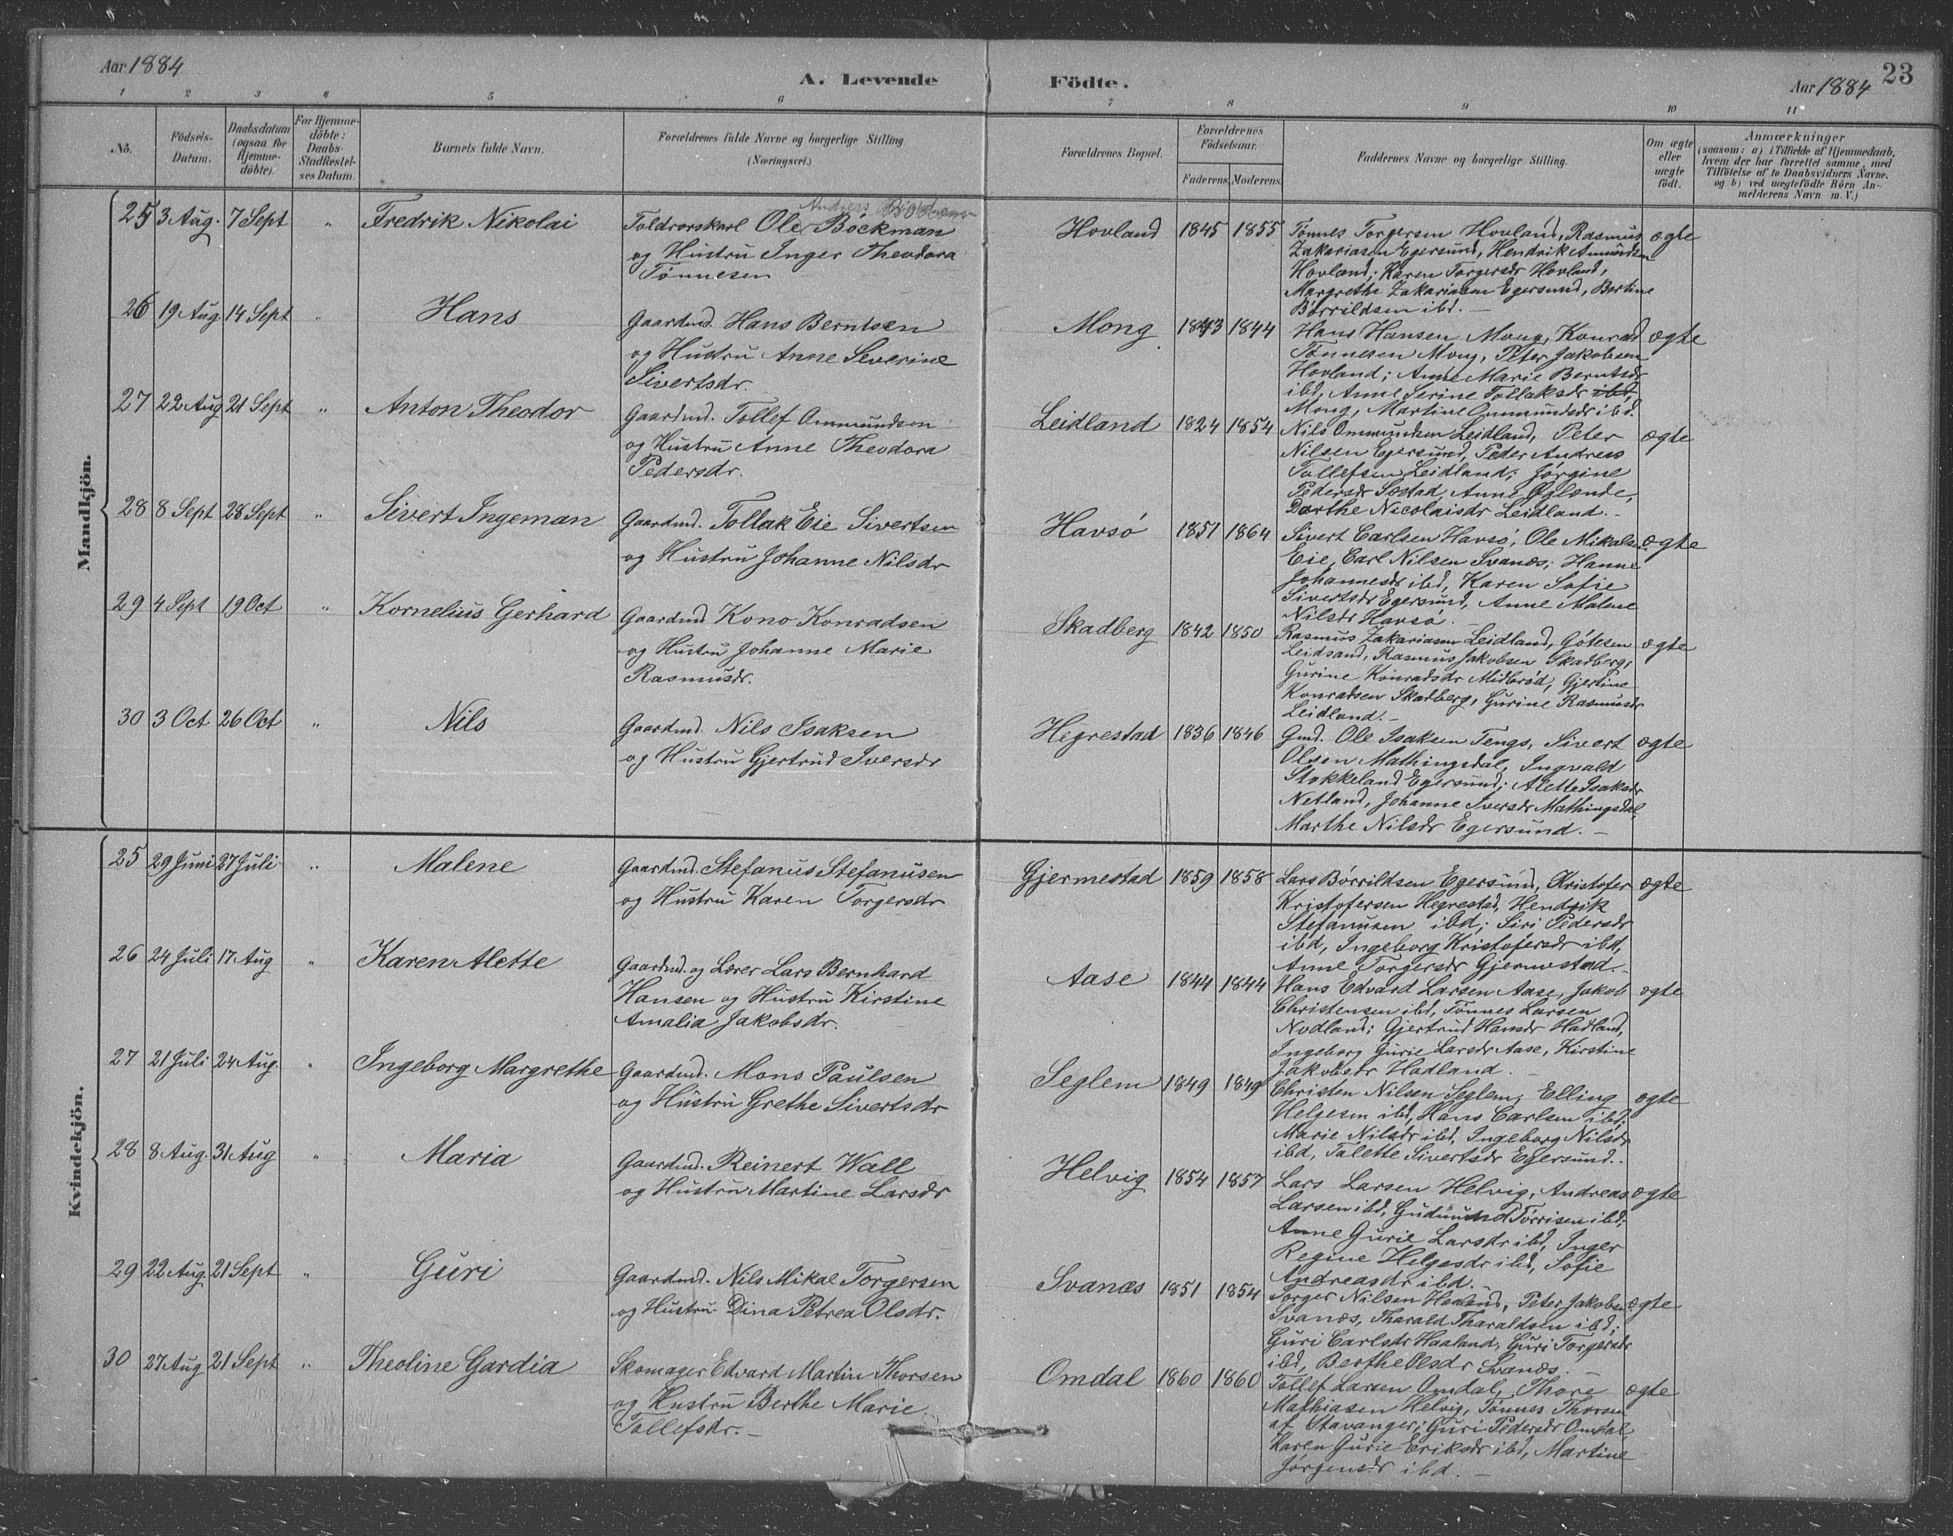 Aar 1884
A. Levende Födte.
Aar 1884
23
1 2 3 4 5 6 7 8 9 10 11
No.
Födsels-Datum.
Daabsdatum (ogsaa for Hjemmedöbte).
For Hjemmedöbte: Daabs-Stadfæstelses Datum.
Barnets fulde Navn.
Forældrenes fulde Navne og borgerlige Stilling (Næringsvei.)
Forældrenes Bopæl.
Forældrenes Födselsaar.
Faderens. Moderens.
Faddernes Navne og borgerlige Stilling.
Om ægte eller uægte födt.
Anmærkninger
(saasom: a) i Tilfælde af Hjemmedaab, hvem der har forrettet samme, med Tilföielse af to Daabsvidners Navne, og b) ved uægtefödte Börn Anmelderens Navn m. V.)
Mandkjön.
25 3 Aug. 7 Sept " Fredrik Nikolai
Andreas
Toldrorskarl Ole Böckman
og Hustru Inger Theodora
Tønnesen
Hovland 1845 1855
Tønnes Torgersen Hovland, Rasmus
Zakariasen Egersund, Hendrik Amundsen
Hovland; Karen Torgersdr Hovland,
Margrethe Zakariasen Egersund, Bertine
Børrildsen ibd. —
ægte
26 19 Aug 14 Sept " Hans
Gaardmd. Hans Berntsen
og Hustru Anne Severine
Sivertsdr.
Mong 1843 1844
Hans Hansen Mong, Konrad
Tønnesen Mong, Peter Jakobsen
Hovland; Anne Marie Berntsdr
ibd, Anne Serine Tollaksdr ibd.
Mong, Martine Ommundsdr ibd.
ægte
27 22 Aug 21 Sept " Anton Theodor
Gaardmd. Tollef Ommundsen
og Hustru Anne Theodora
Pedersdr.
Leidland 1824 1854
Nils Ommundsen Leidland, Peter
Nilsen Egersund, Peder Andreas
Tollefsen Leidland; Jørgine
Pedersdr Sæstad, Anne Øglænde,
Dorthe Nicolaisdr Leidland. -
ægte
28 8 Sept 28 Sept " Sivert Ingeman
Gaardmd. Tollak Eie Sivertsen
og Hustru Johanne Nilsdr
Havsö 1851 1864
Sivert Carlsen Havsö, Ole Mikalsen
Eie, Carl Nilsen Svanæs; Hanne
Johannesdr ibd, Karen Sofie
Sivertsdr Egersund, Anne Malene
Nilsdr Havsö. —
ægte
29 4 Sept 19 Oct " Kornelius Gerhard
Gaardmd Kono Konradsen
og Hustru Johanne Marie
Rasmusdr.
Skadberg 1842 1850
Rasmus Zakariasen Leidland,
Leidland, Rasmus Jakobsen Skadberg,
Gurine Konradsdr Midbrød, Gjertine
Konradsen Skadberg, Gurine Rasmusdr
Leidland. —
ægte
30 3 Oct 26 Oct " Nils
Gaardmd. Nils Isaksen
og Hustru Gjertrud Iversdr
Hegrestad 1836 1846
Gmd. Ole Isaksen Tengs, Sivert
Olsen Mathingsdal, Ingvald
Stokkeland Egersund; Alette Isaksdr
Netland, Johanne Iversdr Mathingsdal,
Marthe Nilsdr Egersund. —
ægte
Kvindekjön.
25 29 Juni 27 Juli " Malene
Gaardmd. Stefanus Stefanusen
og Hustru Karen Torgersdr
Gjermestad 1859 1858
Lars Børrildsen Egersund, Kristofer
Kristofersen Hegrestad, Hendrik
Stefanusen ibd; Siri Pedersdr
ibd, Ingeborg Kristofersdr ibd,
Anne Torgersdr Gjermestad. —
ægte
26 24 Juli 17 Aug " Karen Alette
Gaardmd. og Lærer Lars Bernhard
Hansen og Hustru Kirstine
Amalia Jakobsdr.
Aase 1844 1844
Hans Edvard Larsen Aase, Jakob
Christensen ibd, Tønnes Larsen
Nodland; Gjertrud Hansdr Hadland,
Ingeborg Gurie Larsdr Aase, Kirstine
Jakobsdr Hadland. —
ægte
27 21 Juli 24 Aug. " Ingeborg Margrethe
Gaardmd. Mons Paulsen
og Hustru Grethe Sivertsdr
Seglem 1849 1849
Christen Nilsen Seglem, Elling
Helgesen ibd, Hans Carlsen ibd;
Marie Nilsdr ibd, Ingeborg Nilsdr
ibd, Talette Sivertsdr Egersund. -
ægte
28 8 Aug. 31 Aug " Maria
Gaardmd. Reinert Wall
og Hustru Martine Larsdr
Helvig 1854 1857
Lars Larsen Helvig, Andreas
Larsen ibd, Gudmund Torrisen ibd;
Anne Gurie Larsdr ibd, Inger
Regine Helgesdr ibd, Sofie
Andreasdr ibd. —
ægte
29 22 Aug. 21 Sept " Guri
Gaardmd. Nils Mikal Torgersen
og Hustru Dina Petrea Olsdr.
Svanæs 1851 1854
Torger Nilsen Peter Jakobsen
Svanæs, Tharald Tharaldsen ibd;
Guri Carlsdr Haaland, Guri Torgersdr
ibd, Berthe Olsdr Svanæs. —
ægte
30 27 Aug 21 Sept " Theoline Gardia
Skomager Edvard Martin Thorsen
og Hustru Berthe Marie
Tollefsdr. —
Omdal 1860 1860
Tollef Larsen Omdal, Thore
Mathiasen Helvig, Tønnes Thorsen
af Stavanger; Guri Pedersdr Omdal,
Karen Gurie Eriksdr ibd, Martine
Jørgensdr ibd. —
ægte